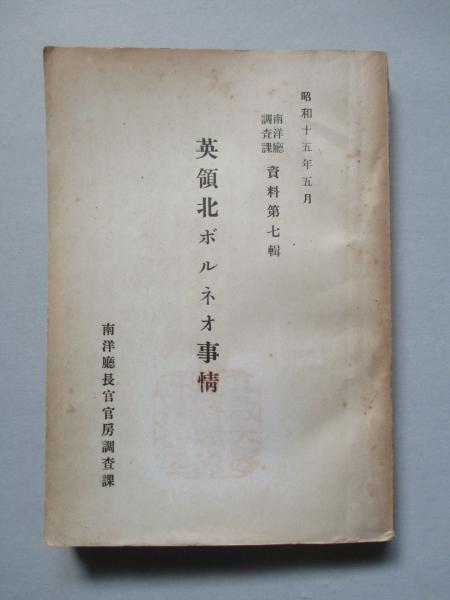 昭和十五年五月
南洋廳
調査課
資料第七輯
英領北ボルネオ事情
南洋廳長官官房調査課